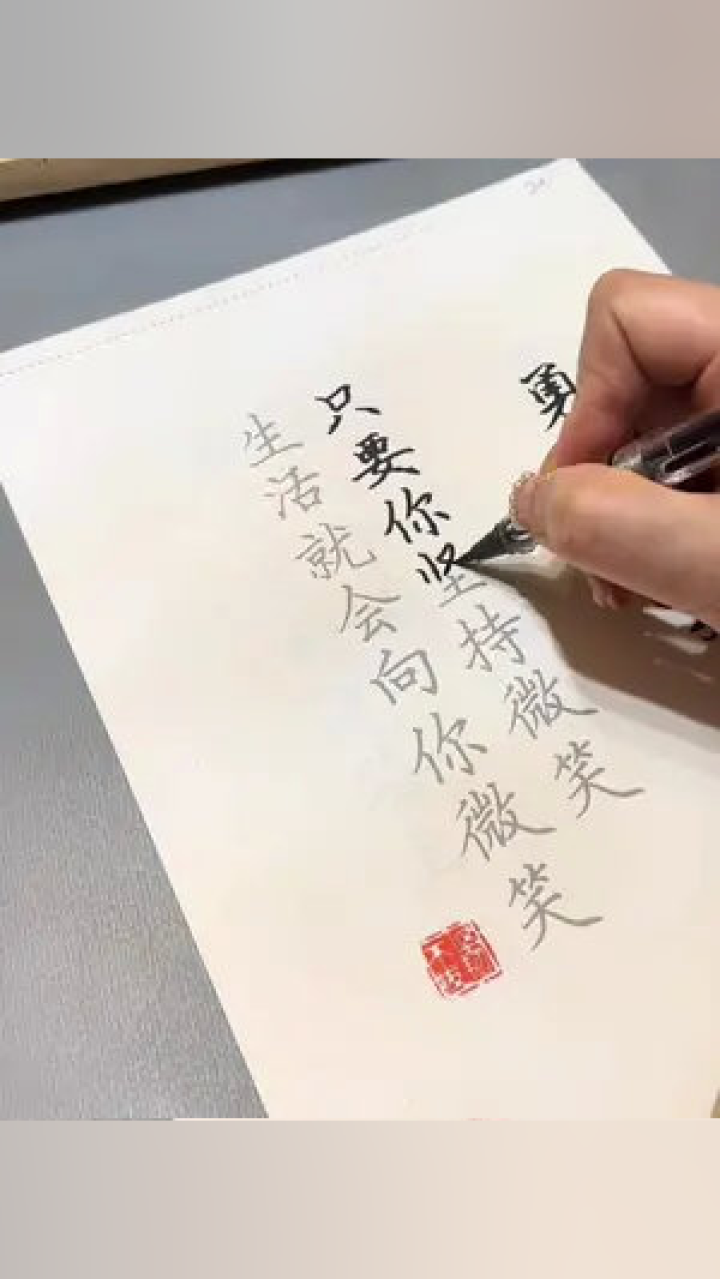 勇
只要你坚持微笑
生活就会向你微笑